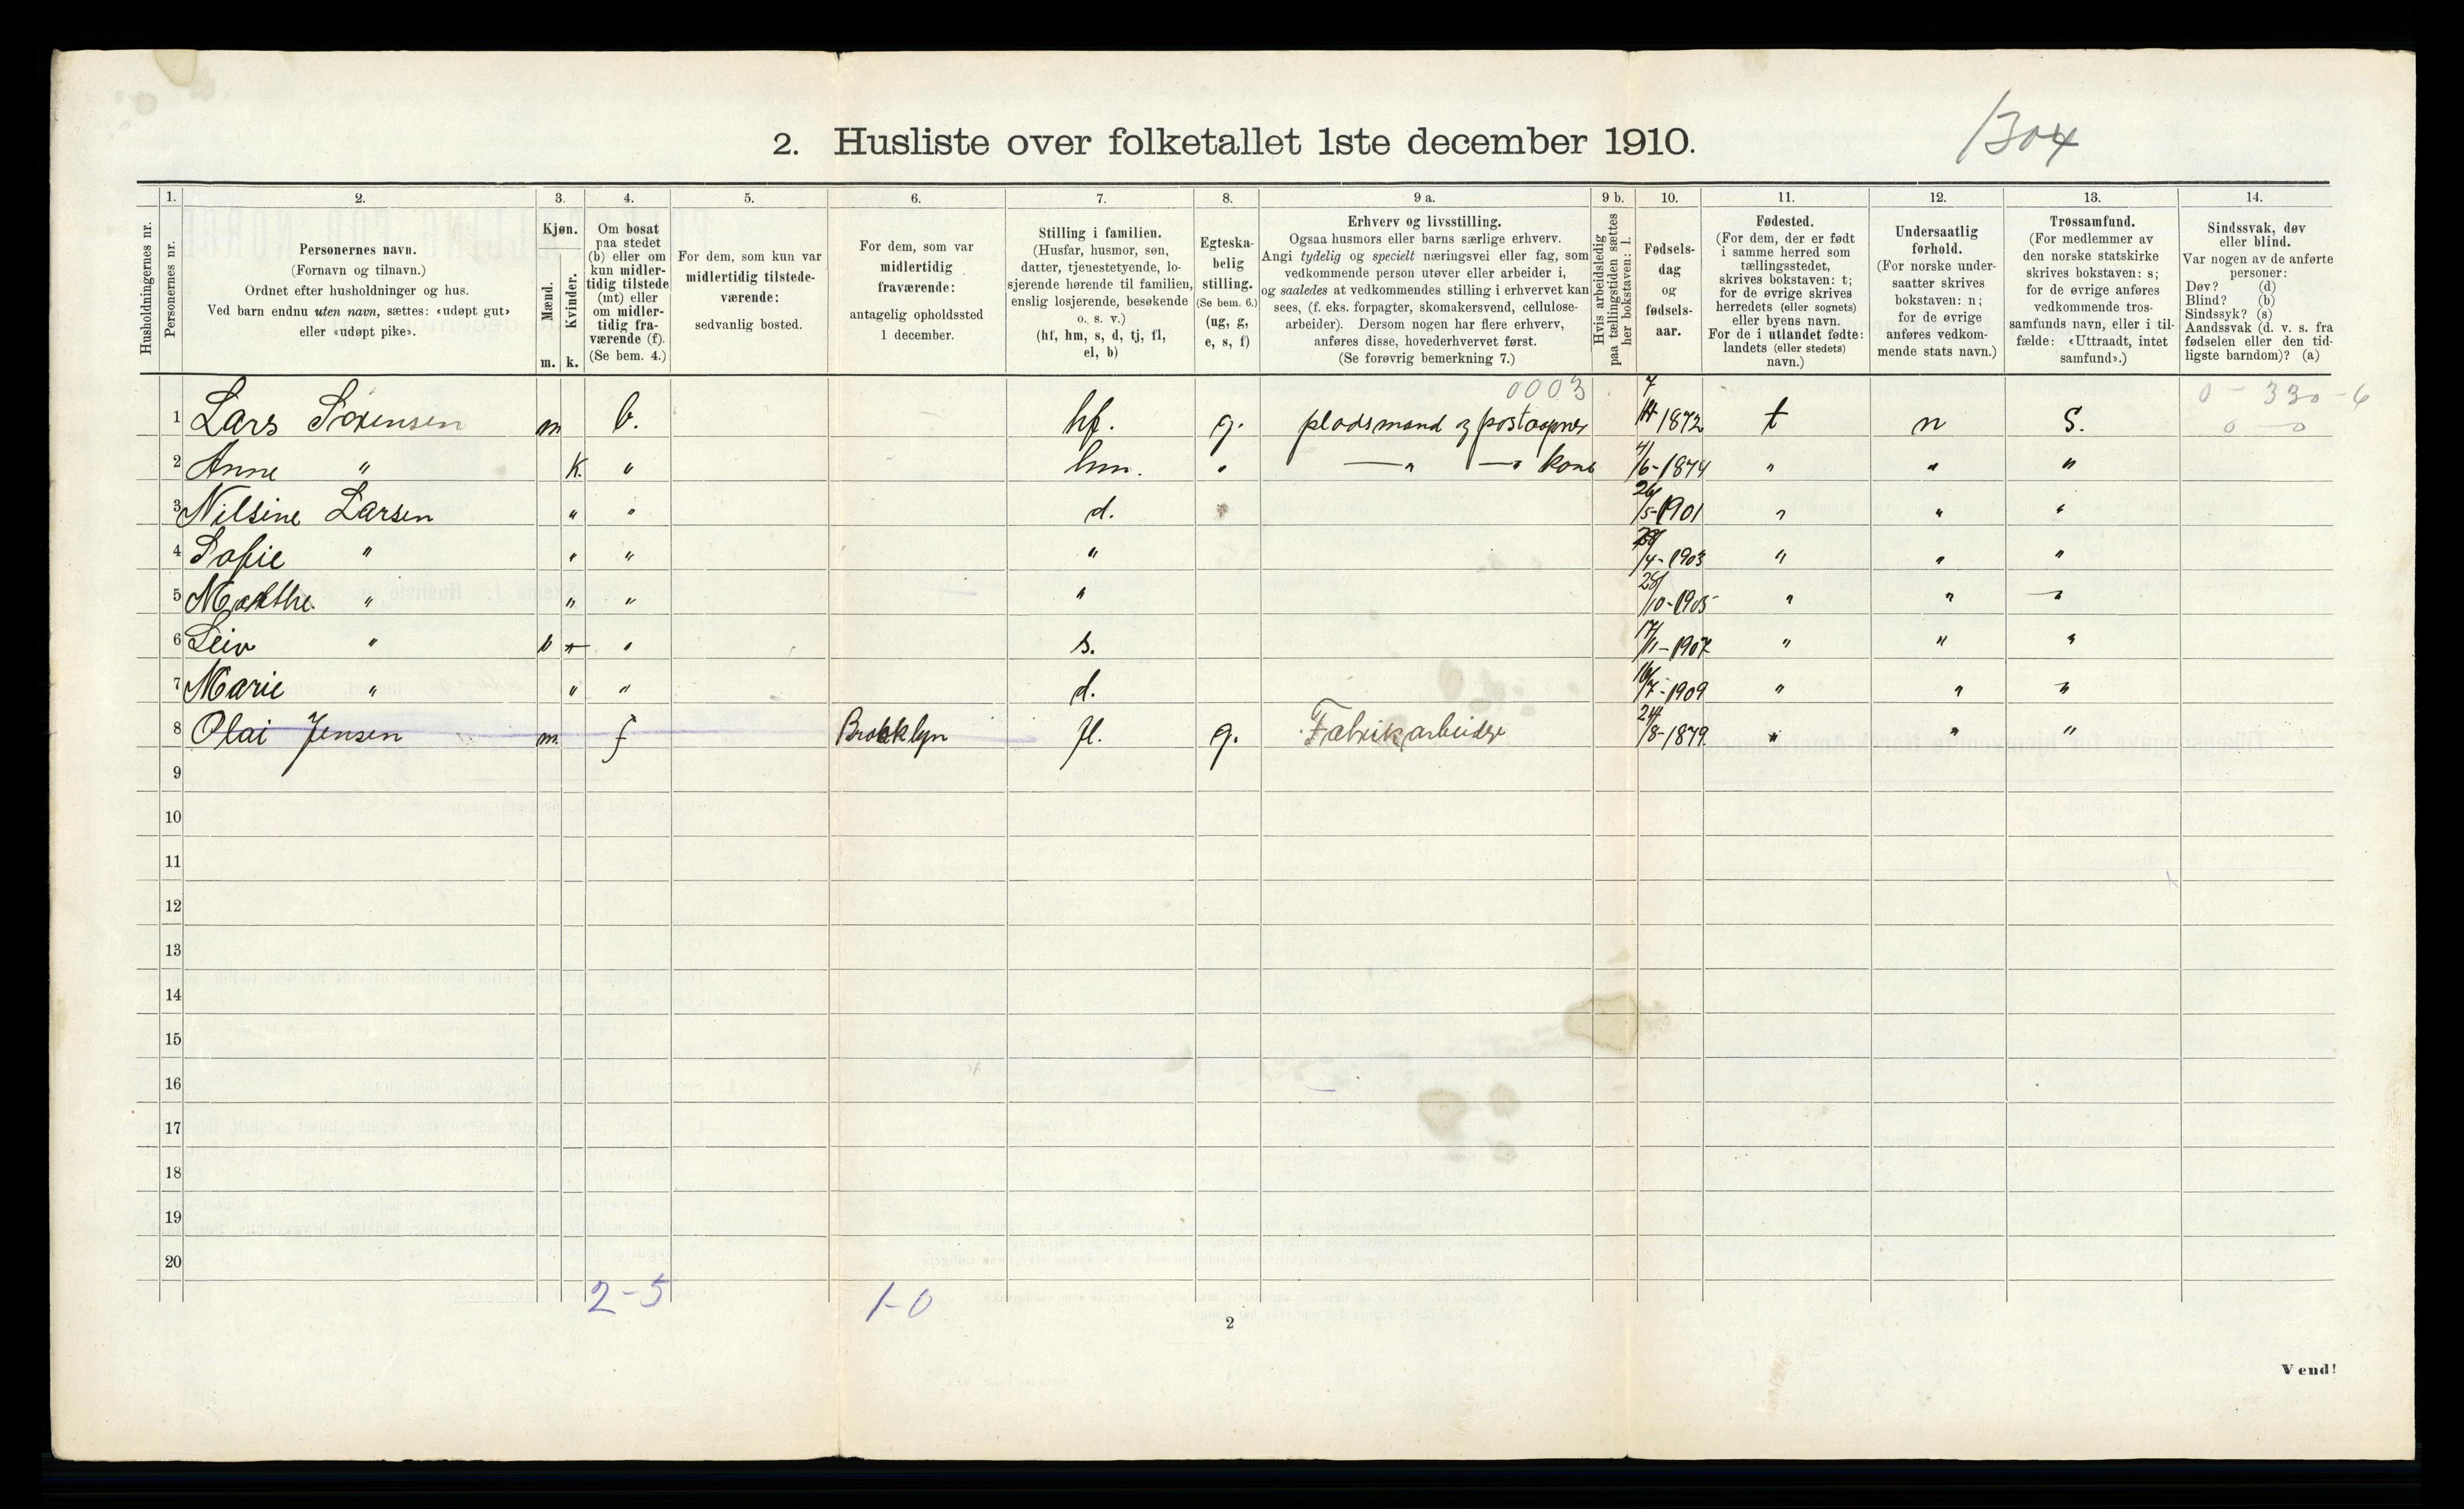 2. Husliste over folketallet 1ste december 1910.
1304
Husholdningernes nr.
1. Personernes nr.
2. Personernes navn.
(Fornavn og tilnavn.)
Ordnet efter husholdninger og hus.
Ved barn endnu uten navn, sættes: «udøpt gut»
eller «udøpt pike».
3. Kjøn.
Mænd. m.
Kvinder. k.
4. Om bosat
paa stedet
(b) eller om
kun midler-
tidig tilstede
(mt) eller
om midler-
tidig fra-
værende (f).
(Se bem. 4.)
5. For dem, som kun var
midlertidig tilstede-
værende:
sedvanlig bosted.
6. For dem, som var
midlertidig
fraværende:
antagelig opholdssted
1 december.
7. Stilling i familien.
(Husfar, husmor, søn,
datter, tjenestetyende, lo-
sjerende hørende til familien,
enslig losjerende, besøkende
o. s. v.)
(hf, hm, s, d, tj, fl,
el, b)
8. Egteska-
belig
stilling.
(Se bem. 6.)
(ug, g,
e, s, f)
9 a. Erhverv og livsstilling.
Ogsaa husmors eller barns særlige erhverv.
Angi tydelig og specielt næringsvei eller fag, som
vedkommende person utøver eller arbeider i,
og saaledes at vedkommendes stilling i erhvervet kan
sees, (f. eks. forpagter, skomakersvend, cellulose-
arbeider). Dersom nogen har flere erhverv,
anføres disse, hovederhvervet først.
(Se forøvrig bemerkning 7.)
9 b. Hvis arbeidsledig
paa tællingstiden sættes
her bokstaven: l.
10. Fødsels-
dag
og
fødsels-
aar.
11. Fødested.
(For dem, der er født
i samme herred som
tællingsstedet,
skrives bokstaven: t;
for de øvrige skrives
herredets (eller sognets)
eller byens navn.
For de i utlandet fødte:
landets (eller stedets)
navn.)
12. Undersaatlig
forhold.
(For norske under-
saatter skrives
bokstaven: n;
for de øvrige
anføres vedkom-
mende stats navn.)
13. Trossamfund.
(For medlemmer av
den norske statskirke
skrives bokstaven: s;
for de øvrige anføres
vedkommende tros-
samfunds navn, eller i til-
fælde: «Uttraadt, intet
samfund».)
14. Sindssvak, døv
eller blind.
Var nogen av de anførte
personer:
Døv? (d)
Blind? (b)
Sindssyk? (s)
Aandssvak (d. v. s. fra
fødselen eller den tid-
ligste barndom)? (a)
0003 0 - 330 - 6
1 Lars Sørensen m b. hf. g. pladsmand og postaapner 1872 t n S. 0 - 0
2 Anne " K. " hm. " — " — " kone 4/6-1874 " " "
3 Nilsine Larsen " " d. 26/5-1901 " " "
4 Sofie " " " " /4-1903 " " "
5 Marthe " " " " 28/10-1905 " " "
6 Leiv " " " s. 17/11-1907 " " "
7 Marie " " " d. 16/7-1909 " " "
8 Olai Jensen m. f Brooklyn fl. g. Fabrikarbeider 24/8-1879 " " "
9
10
11
12
13
14
15
16
17
18
19
20
2-5 1-0
2
Vend!